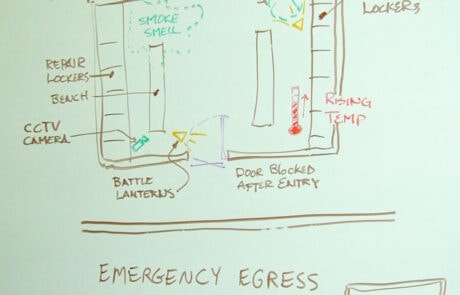 SMOKE
SMELL
LOCKERS
REPAIR
LOCKERS
BENCH
CCTV
CAMERA
RISING
TEMP
BATTLE
LANTERNS
DOOR BLOCKED
AFTER ENTRY
EMERGENCY EGRESS